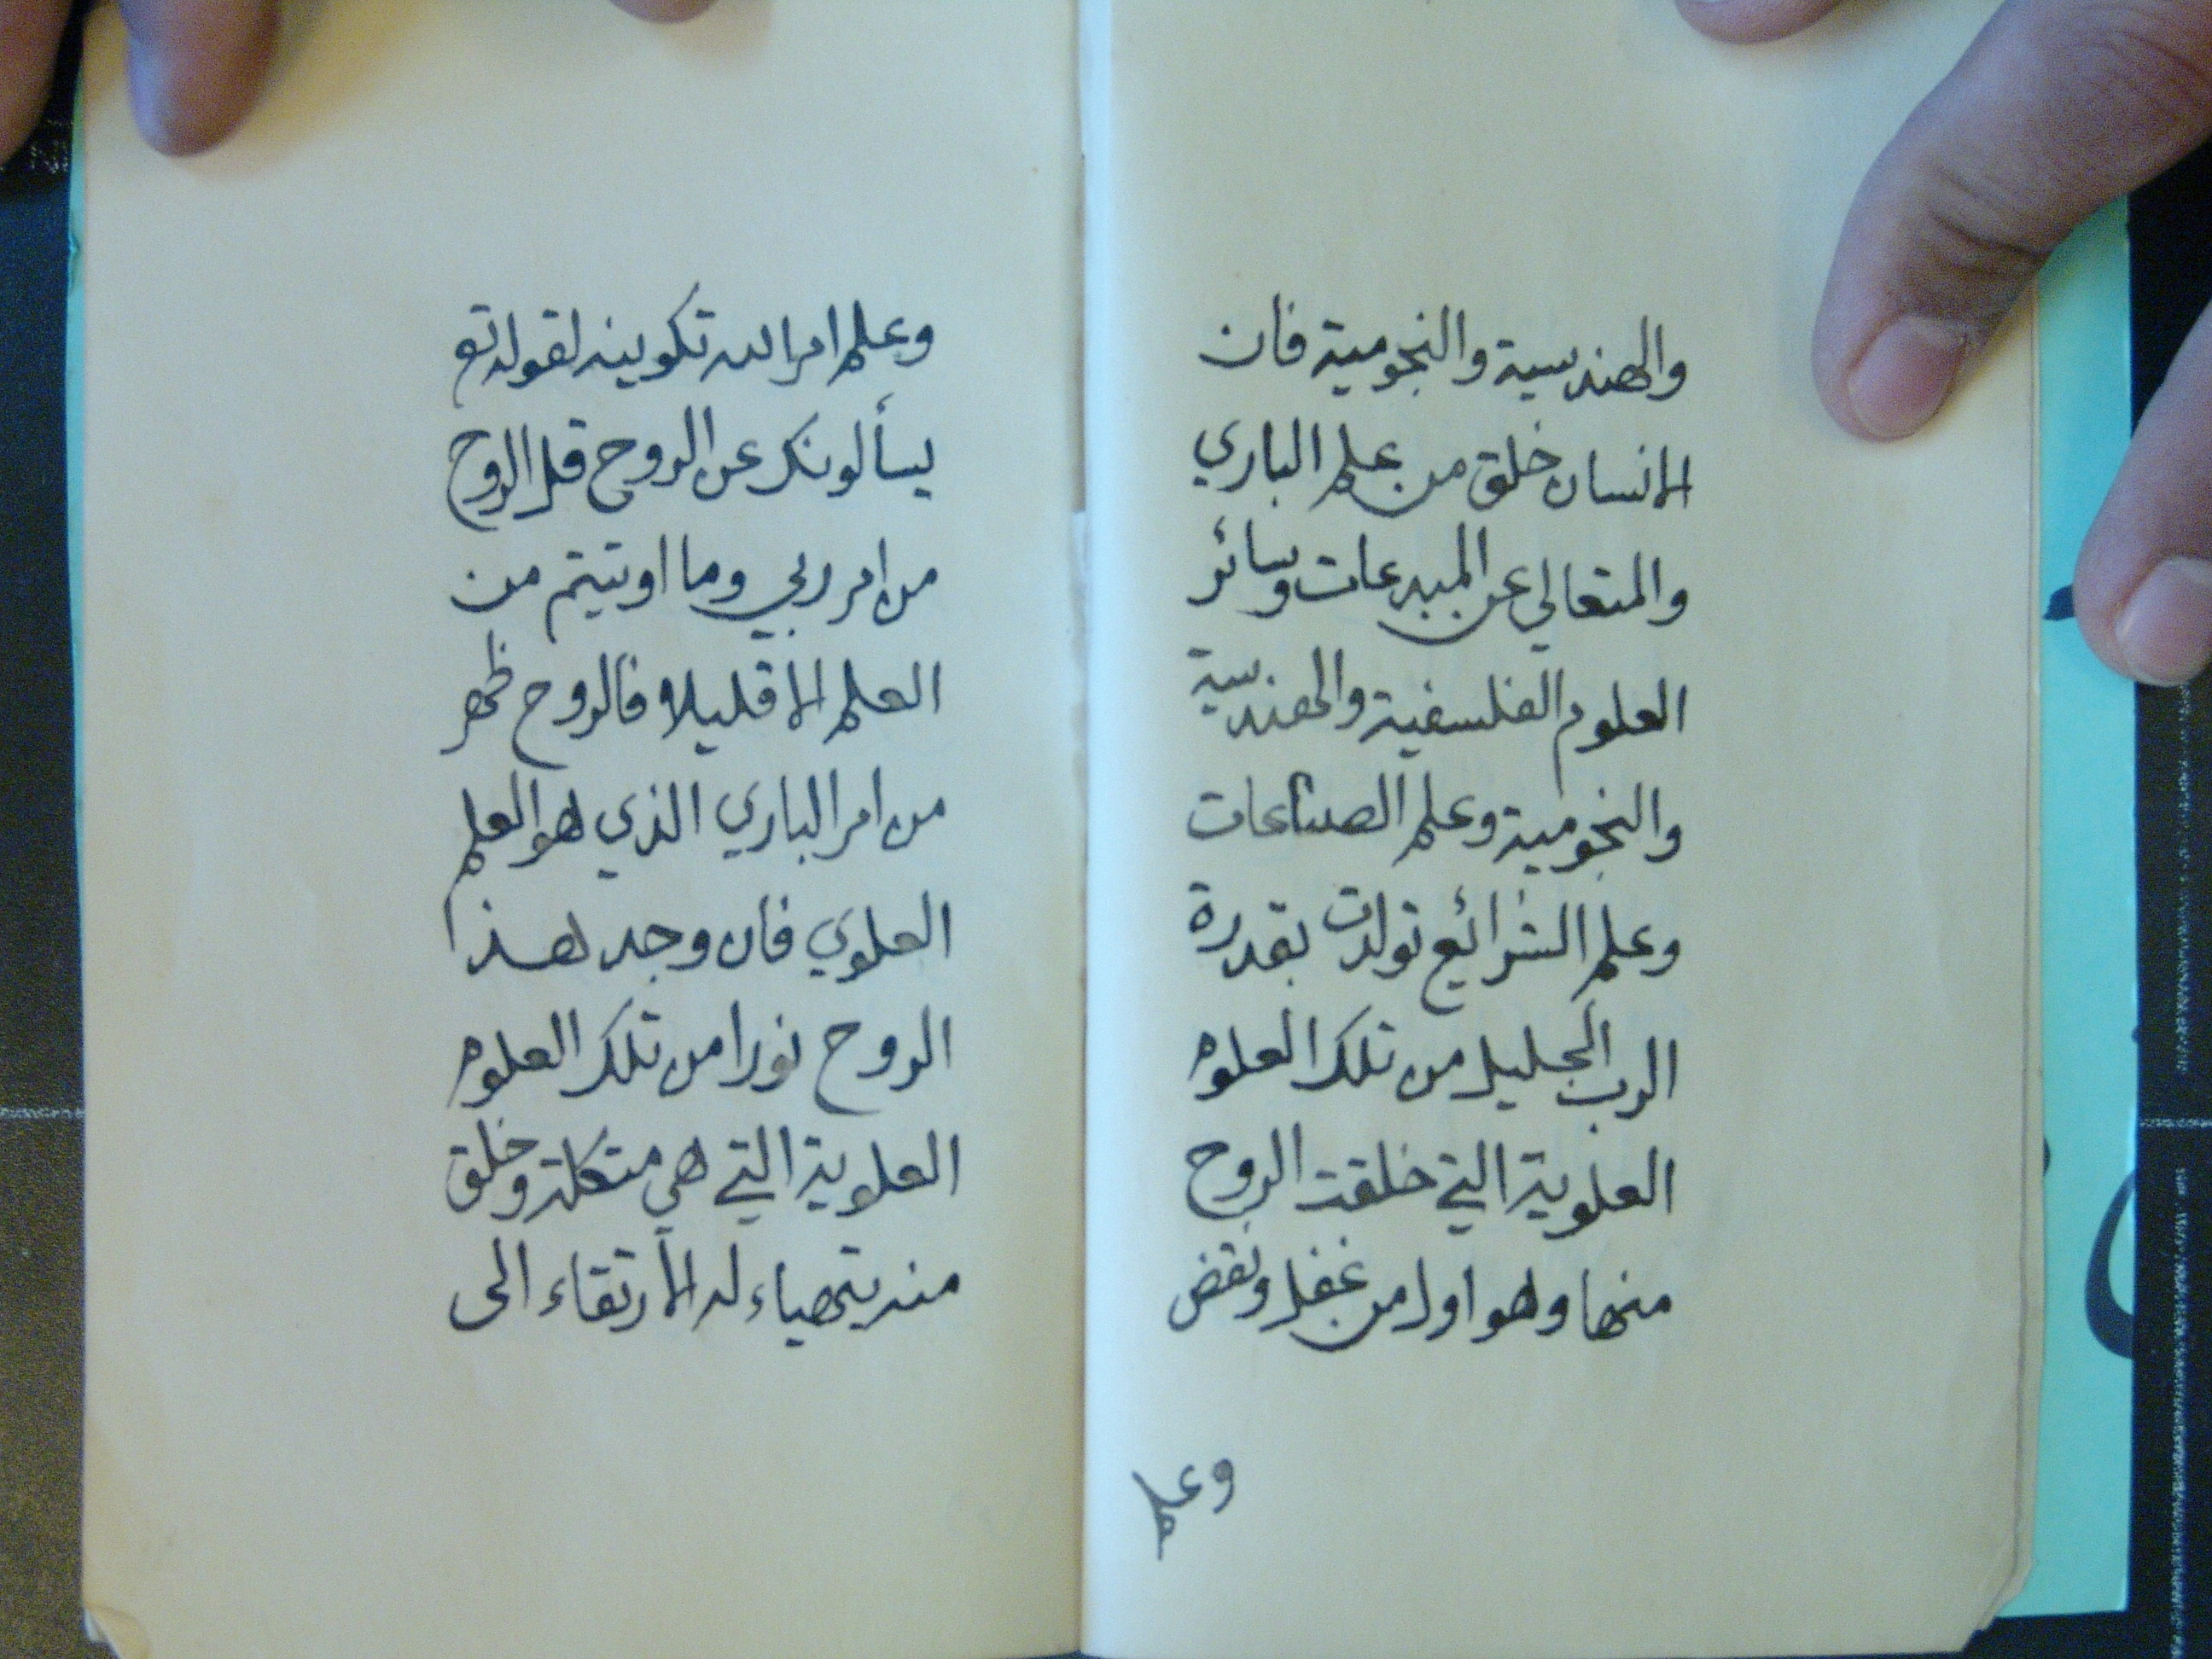 والهندسية والنجومية فان
الانسان خلق من علم الباري
والمتعالي عن المبدعات وسائر
العلوم الفلسفية والهندسية
والنجومية وعلم الصناعات
وعلم الشرائع تولدت بقدرة
الرب الجليل من تلك العلوم
العلوية التي خلقت الروح
منها وهو اول من غفل ونقض
وعلم
وعلم امر الله تكوينه لقوله تع
يسألونك عن الروح قل الروح
من امر ربي وما اوتيتم من
العلم الا قليلا فالروح ظهر
من امر الباري الذي هو العلم
العلوي فان وجد لهذا
الروح نورا من تلك العلوم
العلوية التي هي متكلة وخلق
منه يتهياء له الأرتقاء الى